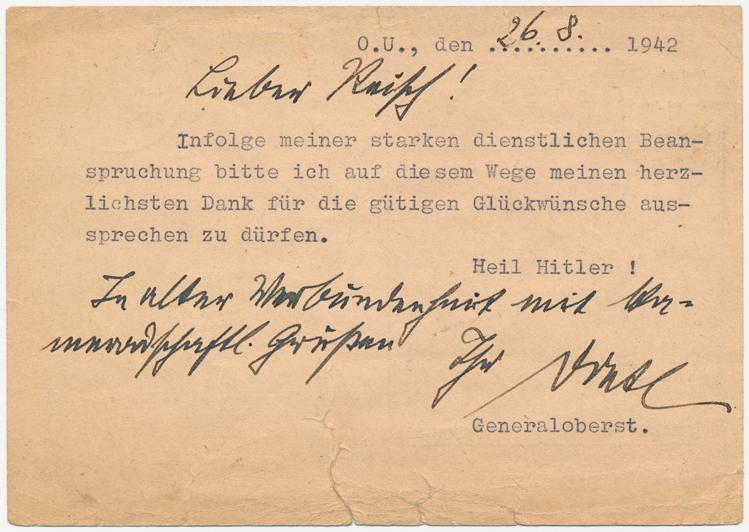 O.U., den 26.8. 1942
Lieber Reisch!
Infolge meiner starken dienstlichen Bean-
spruchung bitte ich auf diesem Wege meinen herz-
lichsten Dank für die gütigen Glückwünsche aus-
sprechen zu dürfen.
Heil Hitler !
In alter Verbundenheit mit ka-
meradschaftl. Grüßen Ihr Dietl
Generaloberst.